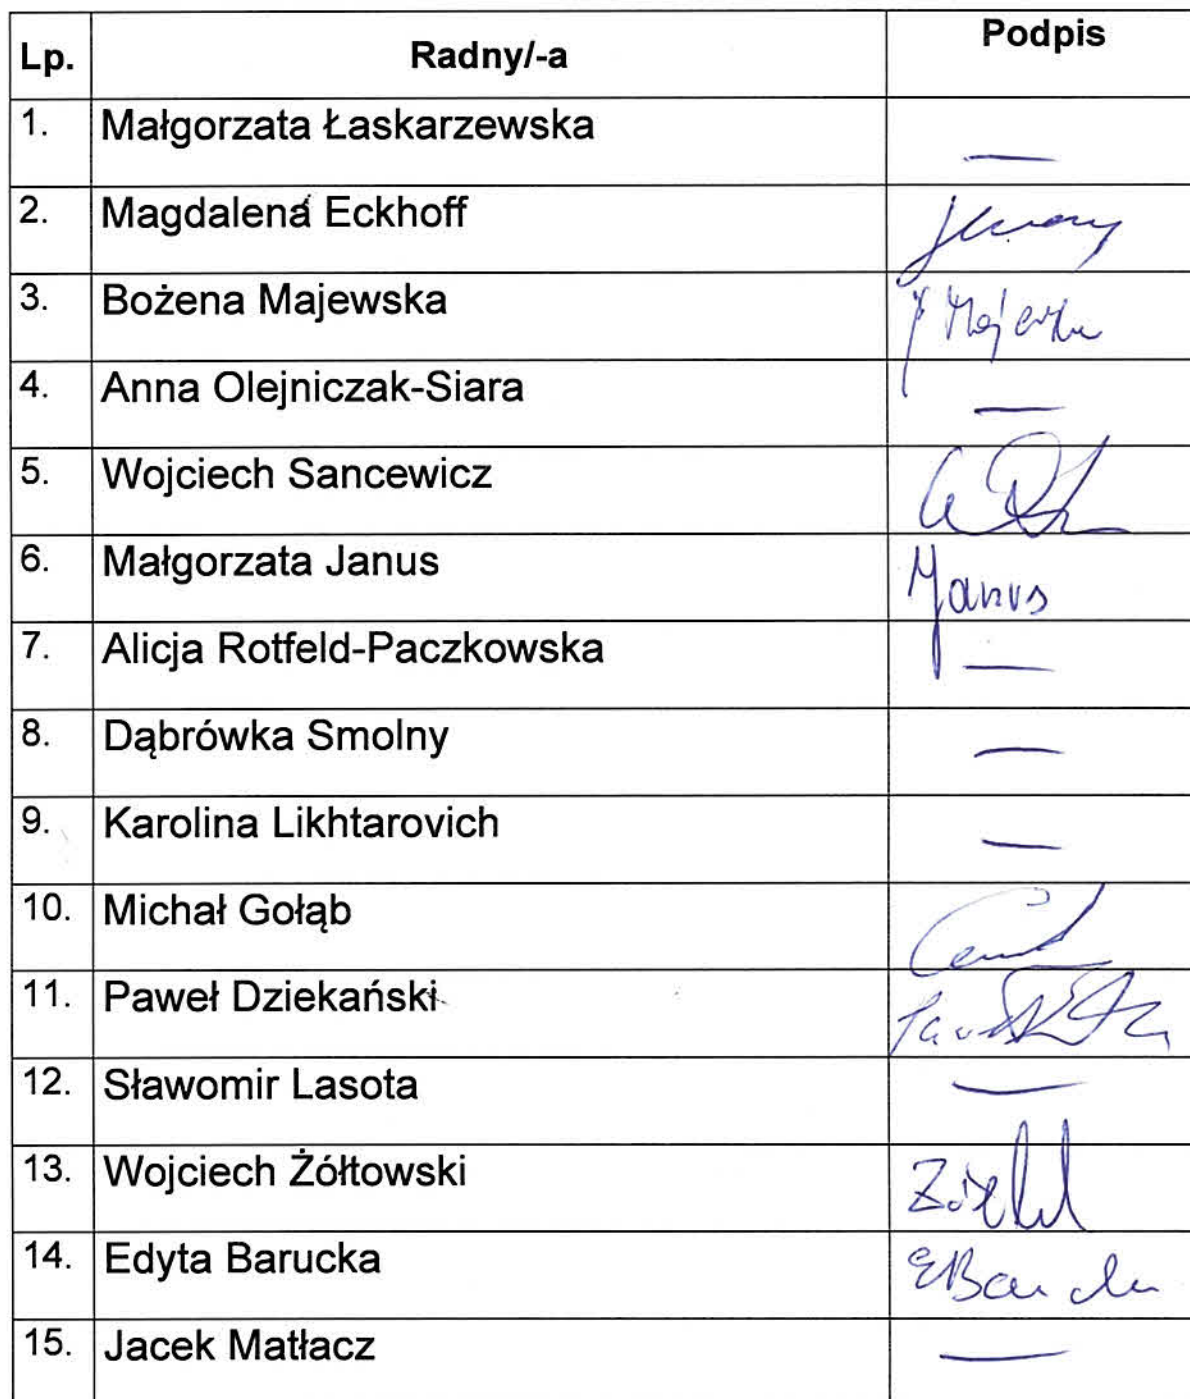 Lp. Radny/-a Podpis
1. Małgorzata Łaskarzewska —
2. Magdalena Eckhoff
3. Bożena Majewska Majewska
4. Anna Olejniczak-Siara —
5. Wojciech Sancewicz
6. Małgorzata Janus Janus
7. Alicja Rotfeld-Paczkowska —
8. Dąbrówka Smolny —
9. Karolina Likhtarovich —
10. Michał Gołąb
11. Paweł Dziekański
12. Sławomir Lasota —
13. Wojciech Żółtowski
14. Edyta Barucka
15. Jacek Matłacz —